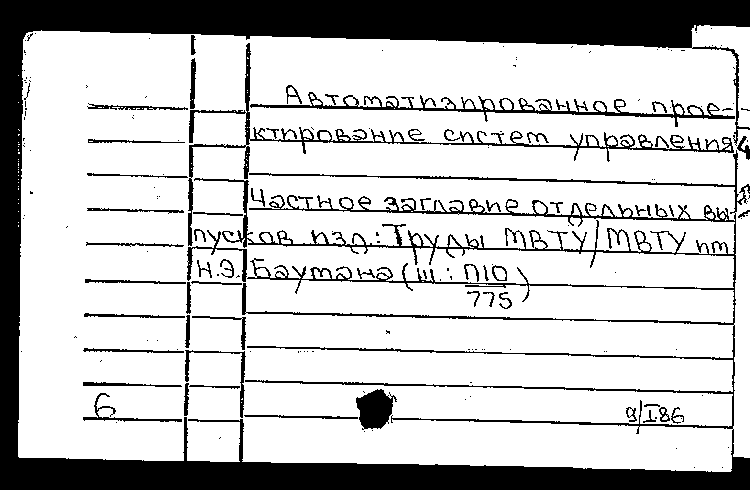 Автоматизированное прое-
ктирование систем управления
Частное заглавие отдельных вы-
пусков изд.: Труды МВТУ/МВТУ им
Н.Э. Баумана (Ш.: П10
775)
6
9/I86